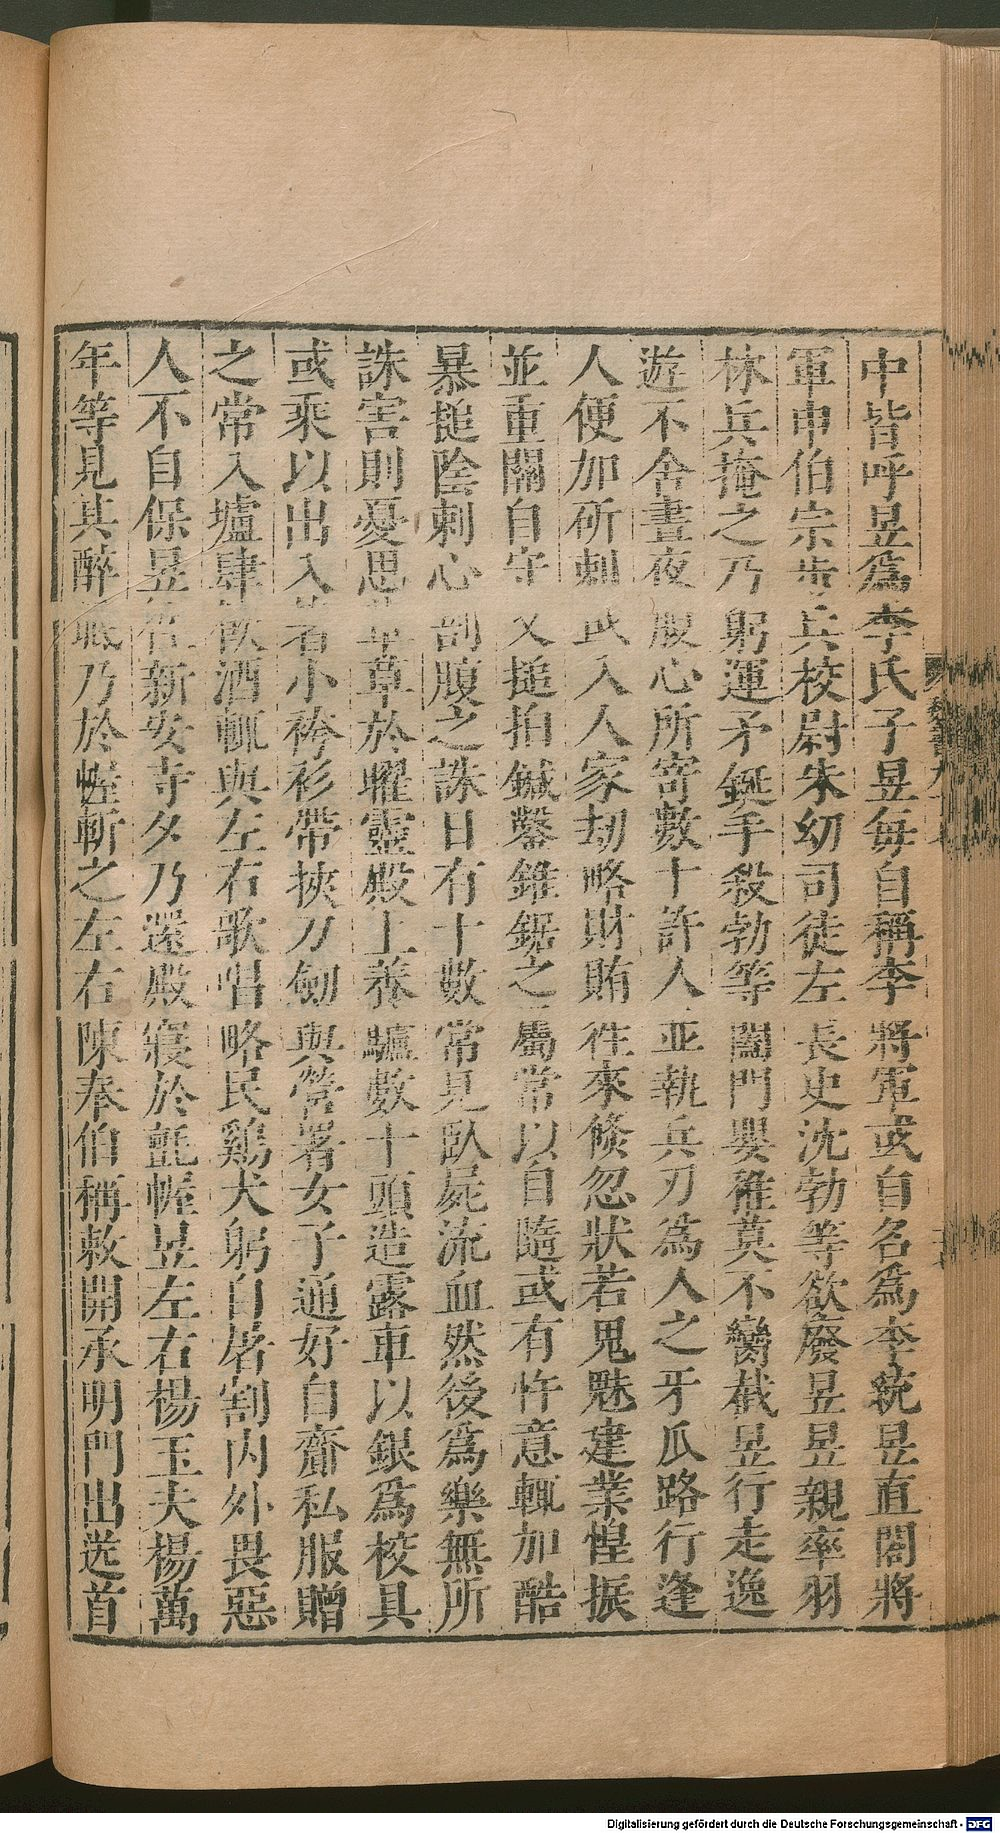 中皆呼昱爲李氏子昱每自稱李將軍或自名爲李統昱直閤將
軍申伯宗步兵校尉朱幼司徒左長史沈勃等欲廢昱昱親率羽
林兵掩之乃躬運矛鋋手殺勃等闔門嬰稚莫不臠截昱行走逸
遊不舍晝夜腹心所寄數十許人並執兵刃爲人之牙爪路行逢
人便加斫刺或入人家劫略財賄往來倏忽狀若鬼魅建業惶振
並重關自守又搥拍鍼鑿錐鋸之屬常以自隨或有忤意輒加酷
暴搥陰刺心剖腹之誅日有十數常見臥屍流血然後爲樂無所
誅害則憂思 草於曜靈殿上養驢數十頭造露車以銀爲校具
或乘以出入 著小袴衫帶挾刀劒與營署女子通好自齎私服贈
之常入壚肆飲酒輒與左右歌唱略民鷄犬躬自屠割內外畏惡
人不自保昱 新安寺夕乃還殿寢於氈幄昱左右楊玉夫楊萬
年等見其醉 乃於幄斬之左右陳奉伯稱敕開承明門出送首
Digitalisierung gefördert durch die Deutsche Forschungsgemeinschaft - DFG